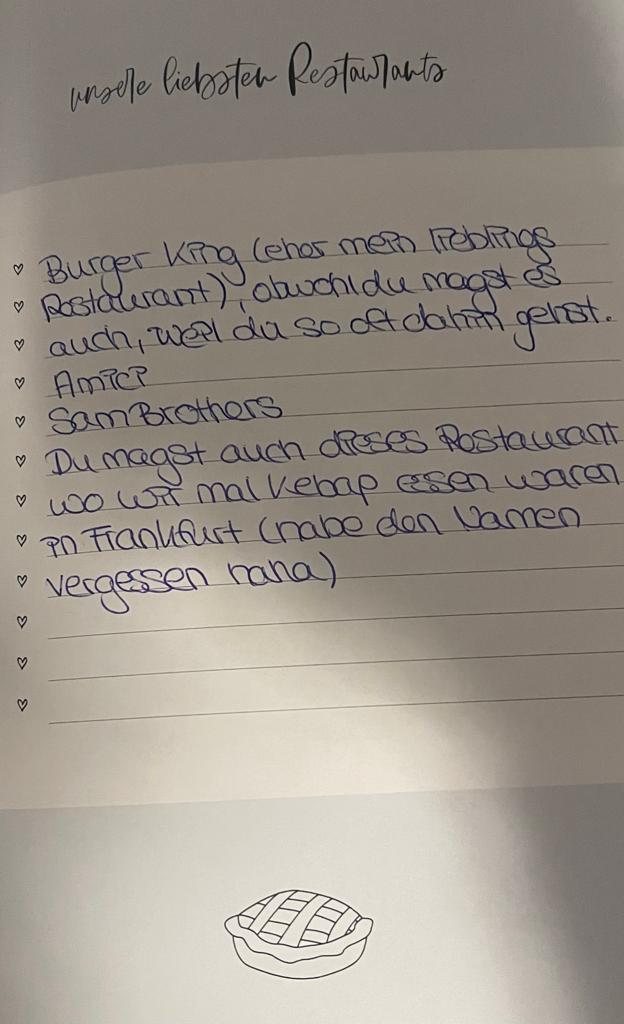 unsere liebsten Restaurants
Burger King (eher mein lieblings
Restaurant), obwohl du magst es
auch, weil du so oft dahin gehst.
Amici
Sam Brothers
Du magst auch dieses Restaurant
wo wir mal Kebap essen waren
in Frankfurt (habe den Namen
vergessen haha)